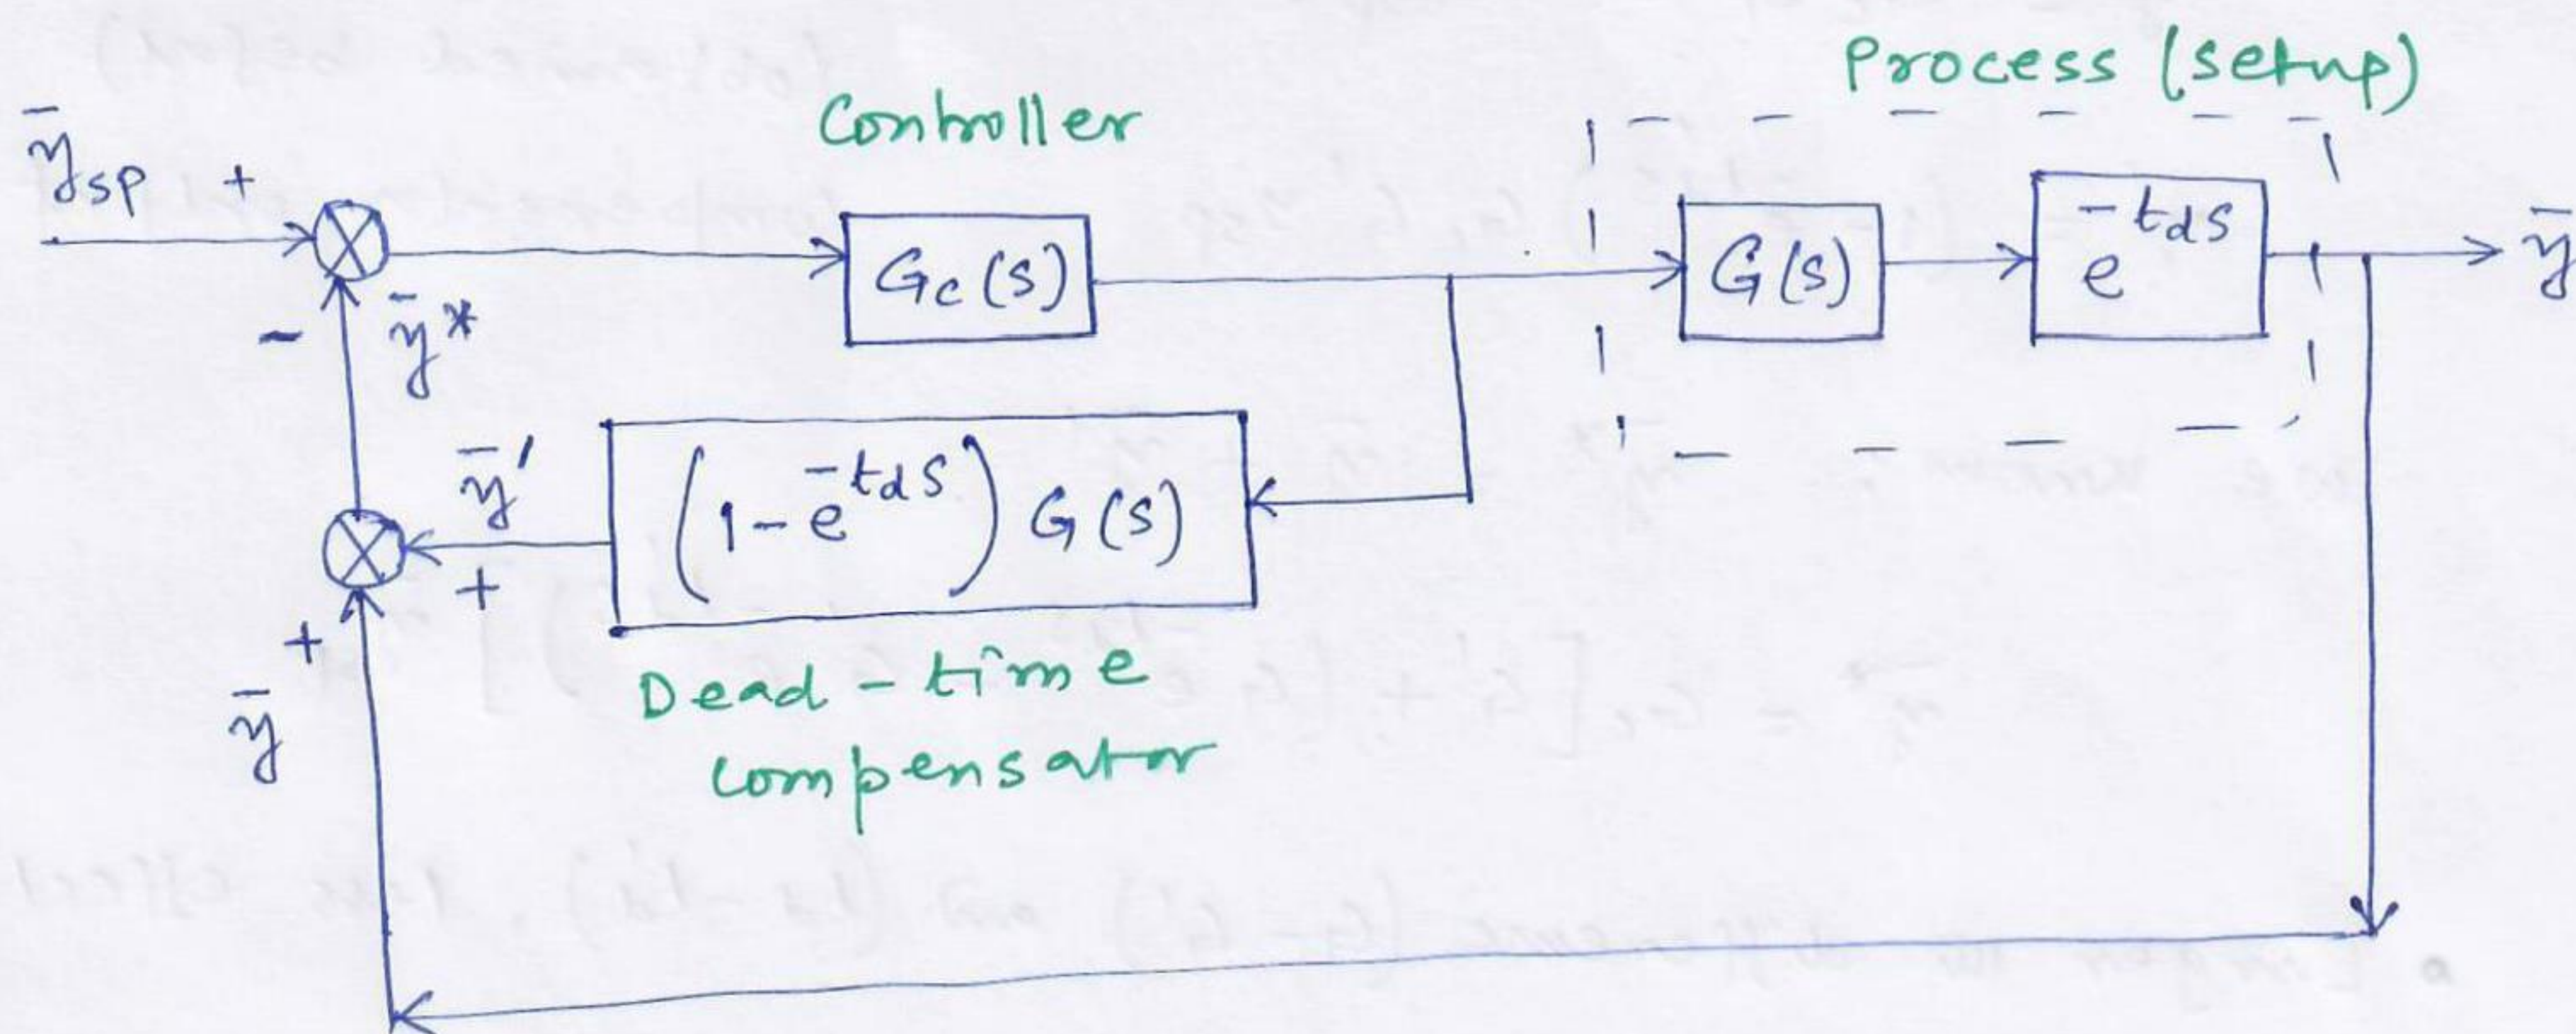 Process (setup)
Controller
ȳsp +
Gc(s)
G(s)
e^-tds
ȳ
- ȳ*
ȳ'
(1-e^-tds) G(s)
+
+
Dead-time
compensator
ȳ